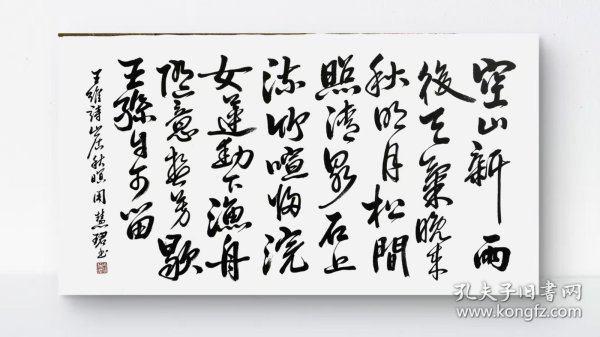 空山新雨
後天氣晚来
秋明月松間
照清泉石上
流竹喧归浣
女蓮動下漁舟
随意春芳歇
王孫自可留
王維詩山居秋暝 周慧珺书
孔夫子旧书网
book.kongfz.com